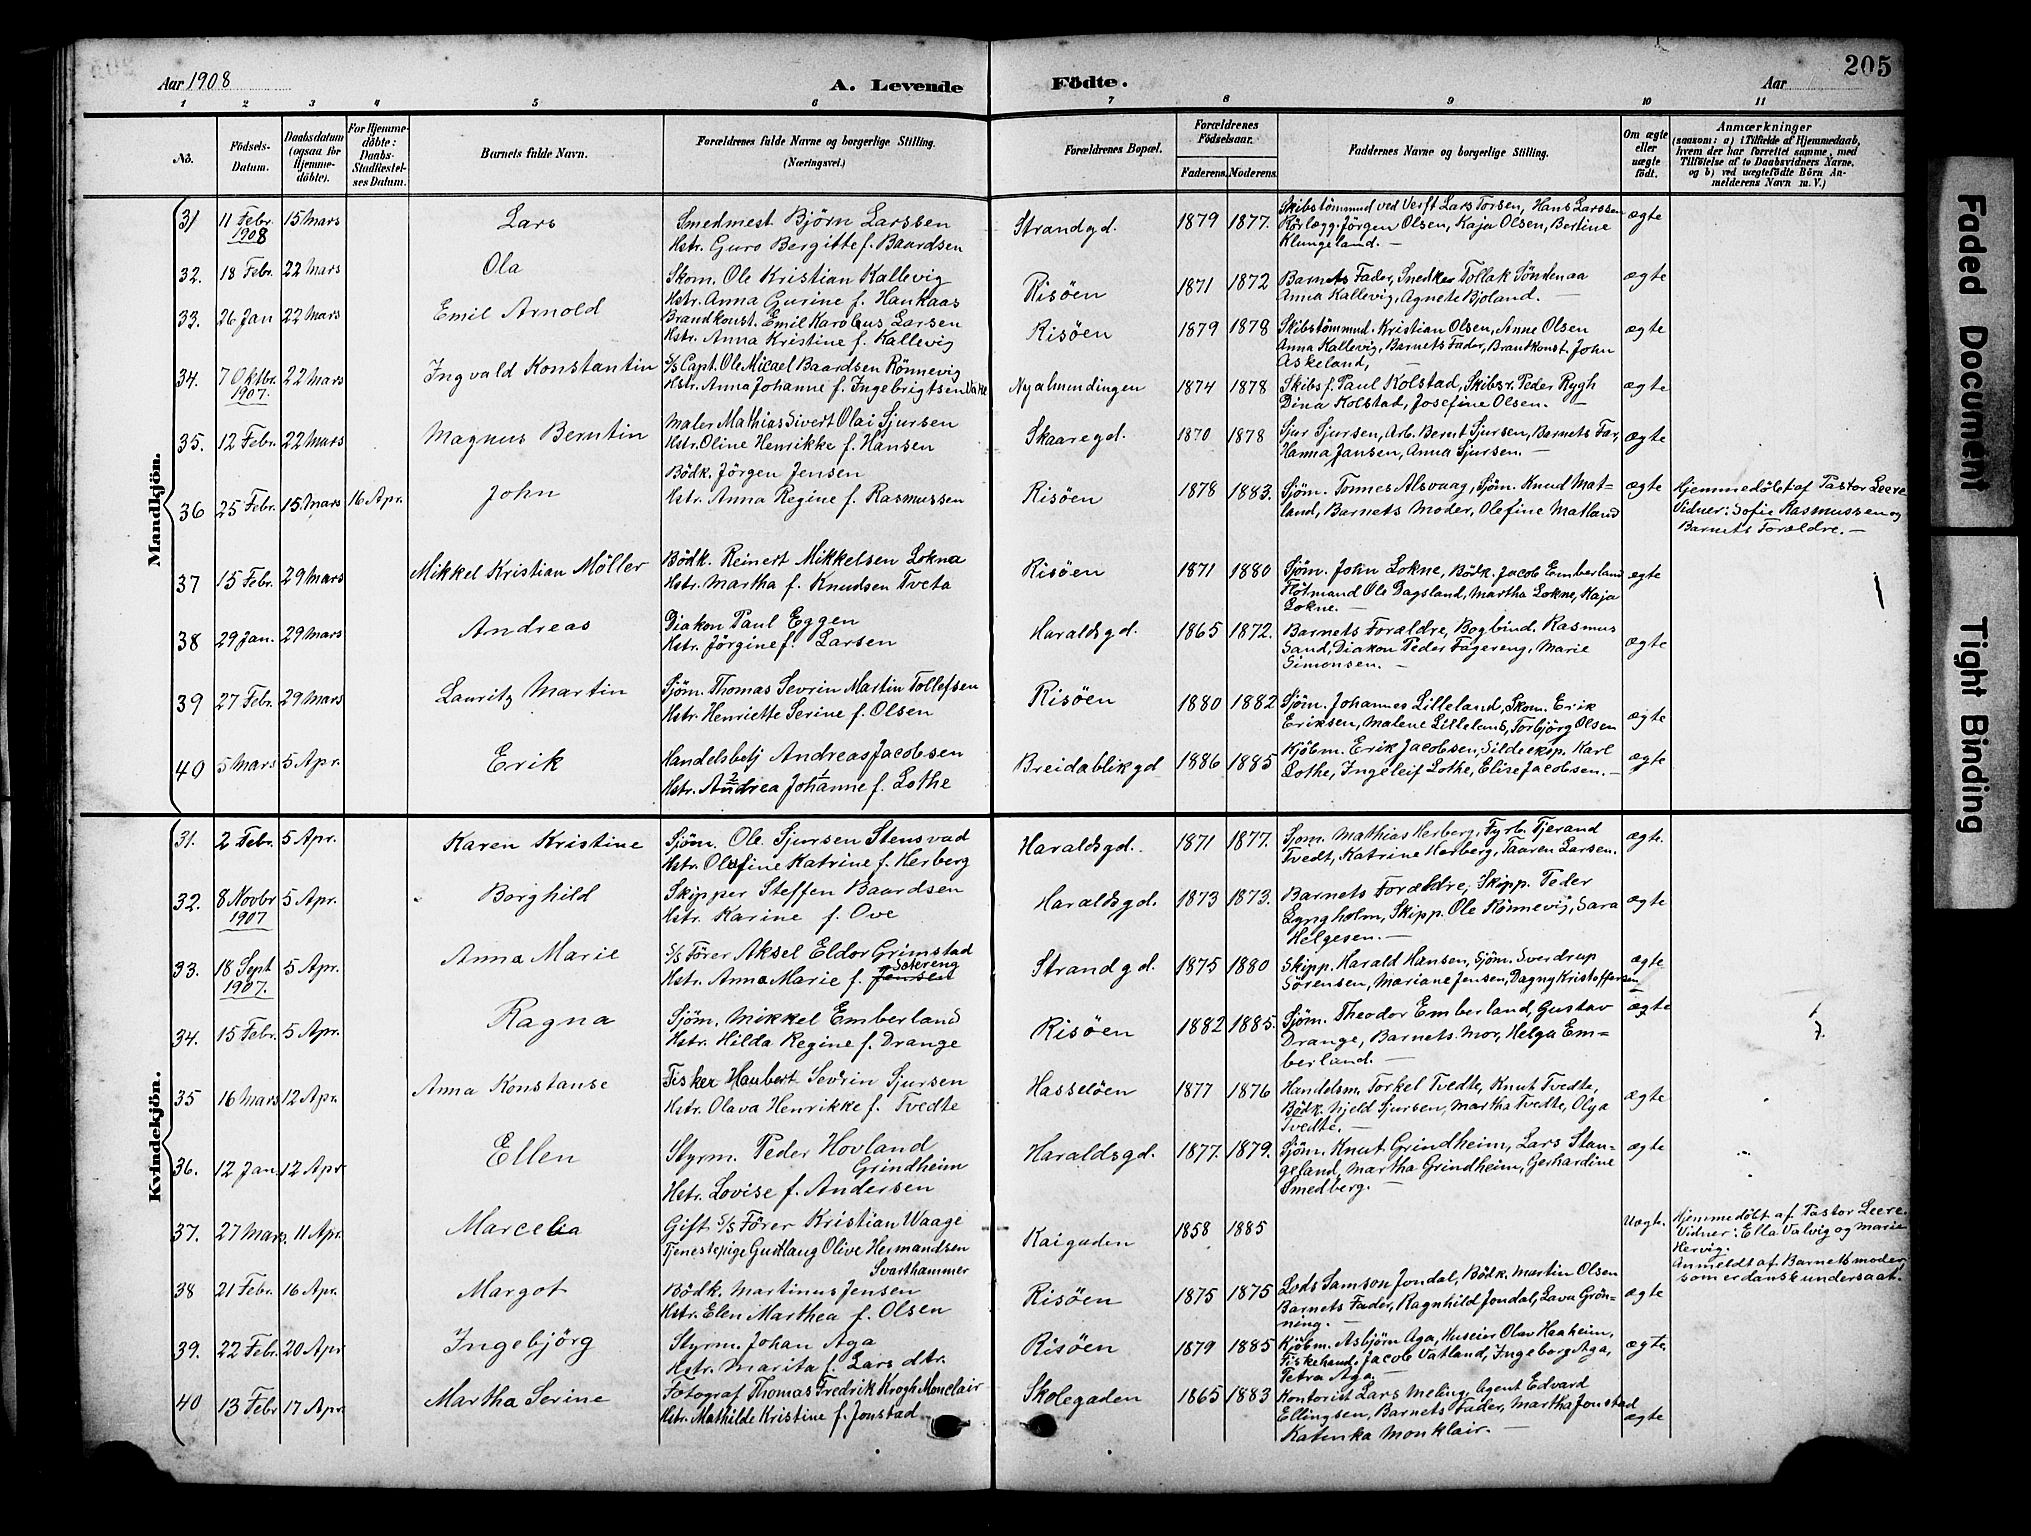 205
Aar 1908
A. Levende
Födte.
Aar
1 2 3 4 5 6 7 8 9 10 11
No.
Födsels-Datum.
Daabsdatum (ogsaa for Hjemme-döbte).
For Hjemme-döbte: Daabs-Stadfæstel-ses Datum.
Barnets fulde Navn.
Forældrenes fulde Navne og borgerlige Stilling. (Næringsvei.)
Forældrenes Bopæl.
Forældrenes Födselsaar.
Faderens. Moderens.
Faddernes Navne og borgerlige Stilling.
Om ægte eller uægte födt.
Anmærkninger
(saasom: a) i Tilfælde af Hjemmedaab, hvem der har forrettet samme, med Tilföielse af to Daabsvidners Navne, og b) ved uægtefödte Börn An-melderens Navn m. V.)
Mandkjön.
31 11 Febr. 1908 15 Mars Lars Smedmest Bjørn Larssen Hstr. Guro Bergitte f. Baardsen Strandgd. 1879 1877. Skibstömmud ved Verft Lars Torsen, Hans Larssen Rörlægg. Jörgen Olsen, Kaja Olsen, Bertine Klungeland. — ægte
32. 18 Febr. 22 Mars Ola Skom. Ole Kristian Kallevig Hstr. Anna Gurine f. Haukaas Risöen 1871 1872 Barnets Fader, Snedker Tollak Söndenaa Anna Kallevig, Agnete Bjoland. — ægte
33. 26 Jan 22 Mars Emil Arnold Brandkonst. Emil Karolius Larsen Hstr. Anna Kristine f. Kallevig Risöen 1879 1878 Skibstömmud. Kristian Olsen, Anne Olsen Anna Kallevig, Barnets Fader, Brandkonst. John Askeland, — ægte
34. 7 Oktbr. 1907. 22 Mars Ingvald Konstantin S/s Capt. Ole Micael Baardsen Rönnevig Hstr. Anna Johanne f. Ingebrigtsen Nyalmundingen 1874 1878 Skibsf. Paul Kolstad, Skibsr. Peder Rygh Dina Kolstad, Josefine Olsen. — ægte
35. 12 Febr. 22 Mars Magnus Berntin Maler Mathias Sivert Olai Sjursen Hstr. Oline Henrikke f. Hansen Skaaregd. 1870 1878 Sjur Sjursen, Arb. Bernt Sjursen, Barnets Far, Hanna Jansen, Anna Sjursen. — ægte
36 25 Febr. 15 Mars 16 Apr. John Bödk. Jörgen Jensen Hstr. Anna Regine f. Rasmussen Risöen 1878 1883. Sjöm. Tonnes Alsvaag, Sjöm. Knud Mat-land, Barnets Moder, Olefine Matland ægte Hjemmedöbt af Pastor Leere Vidner: Sofie Rasmussen og Barnets Forældre. —
37 15 Febr. 29 Mars Mikkel Kristian Möller Bödk. Reinert Mikkelsen Lokna Hstr. Martha f. Knudsen Tveta Risöen 1871 1880 Sjöm. John Lokne, Bödk. Jacob Emberland Flötmand Ole Dagsland, Martha Lokne, Kaja Lokne. — ægte
38 29 Jan. 29 Mars Andreas Diakon Paul Eggen Hstr. Jörgine f. Larsen Haraldsgd. 1865 1872. Barnets Forældre, Bogbind. Rasmus Sand, Diakon Peder Fagereng, Marie Simonsen. — ægte
39 27 Febr. 29 Mars Lauritz Martin Sjöm. Thomas Sevrin Martin Tollefsen Hstr. Henriette Serine f. Olsen Risöen 1880 1882 Sjöm. Johannes Lilleland, Skom. Erik Eriksen, Malene Lilleland, Torbjörg Olsen ægte
40 5 Mars 5 Apr. Erik Handelsbetj Andreas Jacobsen Hstr. Andrea Johanne f. Lothe Breidablikgd 1886 1885 Kjöbm. Erik Jacobsen, Sildeeksp. Karl Lothe, Ingeleif Lothe, Elise Jacobsen. — ægte
Kvindekjön.
31. 2 Febr. 5 Apr. Karen Kristine Sjöm. Ole Sjursen Stensvad Hstr. Olefine Katrine f. Herberg Haraldsgd. 1871 1877. Sjöm. Mathias Herberg, Fyrb. Tjerand Tvedt, Katrine Herberg, Taaren Larsen. ægte.
32. 8 Novbr 1907 5 Apr. Borghild Skipper Steffen Baardsen Hstr. Karine f. Ove Haraldsgd. 1873 1873. Barnets Forældre, Skipp. Peder Lyngholm, Skipp. Ole Rönnevig, Sara Helgesen. — ægte
33. 18 Sept 1907. 5 Apr. Anna Marie S/s Förer Aksel Eldor Grimstad Hstr. Anna Marie f. Jensen Strandgd. 1875 1880 Skipp. Harald Hansen, Sjöm. Sverdrup Sörensen, Mariane Jensen, Dagny Kristoffersen ægte
34. 15 Febr. 5 Apr. Ragna Sjöm. Mikkel Emberland Hstr. Hilda Regine f. Drange Risöen 1882 1885. Sjöm. Theodor Emberland, Gustav Drange, Barnets Mor, Helga Em-berland. — ægte
35 16 Mars 12 Apr. Anna Konstanse Fisker Haubert Sevrin Sjursen Hstr. Olava Henrikke f. Tvedte Hasselöen 1877 1876 Handelsm. Torkel Tvedte, Knut Tvedte, Bödk. Njeld Sjursen, Martha Tvedte, Olga Tvedte. — ægte
36. 12 Jan 12 Apr Ellen Styrm. Peder Hovland Grindheim Hstr. Lovise f. Andersen Haraldsgd. 1877. 1879. Sjöm. Knut Grindheim, Lars Stan-geland, Martha Grindheim, Gerhardine Smedberg. — ægte
37. 27 Mars 11 Apr. Marcelia Gift S/s Förer Kristian Waage Tjenestepige Gudlaug Olive Hermandsen Svarthammer Kaigaden 1858 1885 Uægte. Hjemmedöbt af Pastor Leere. Vidner: Ella Valvig og Marie Hervig. Anmeldt af Barnets moder, som er dansk undersaat.
38 21 Febr. 16 Apr. Margot Bödk. Martinus Jensen Hstr. Elen Marthea f. Olsen Risöen 1875 1875 Lods Samson Jondal, Bödk. Martin Olsen Barnets Fader, Ragnhild Jondal, Lava Grön-ning. — ægte
39. 22 Febr. 20 Apr Ingebjörg Styrm. Johan Aga Hstr. Marita f. Lars dtr. Risöen 1879 1885 Kjöbm. Asbjörn Aga, Huseier Olav Haaheim, Fiskehand. Jacob Vatland, Ingeborg Aga, Petra Aga. — ægte.
40 13 Febr 17 Apr. Martha Serine Fotograf Thomas Fredrik Krogh Monclair Hstr. Mathilde Kristine f. Jonstad Skolegaden 1865 1883 Kontorist Lars Meling, Agent Edvard Ellingsen, Barnets Fader, Martha Jonstad Katinka Monklair. — ægte
Faded Document
Tight Binding